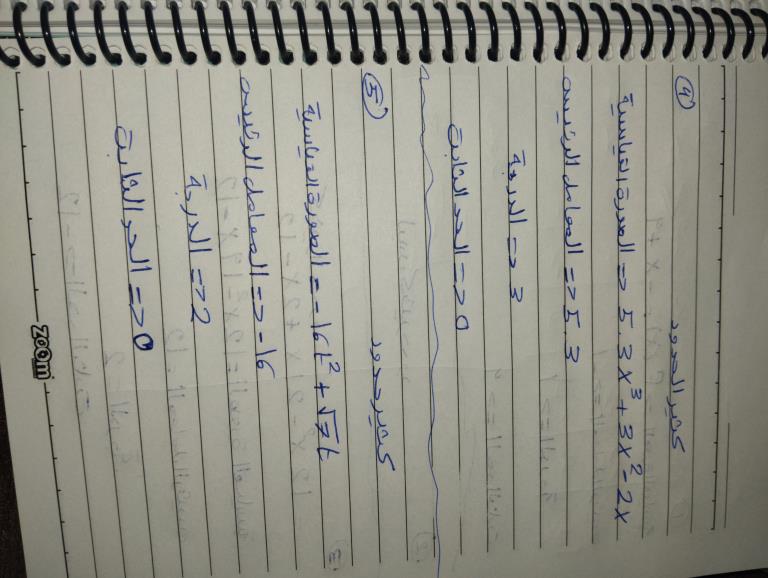 ④
كثير الحدود
الصورة القياسية => 5.3x³ + 3x² - 2x
المعامل الرئيسي => 5.3
الدرجة => 3
الحد الثابت => 0
⑤
كثير حدود
الصورة القياسية = -16t² + √7t
المعامل الرئيسي => -16
الدرجة => 2
الحد الثابت => 0
zoom